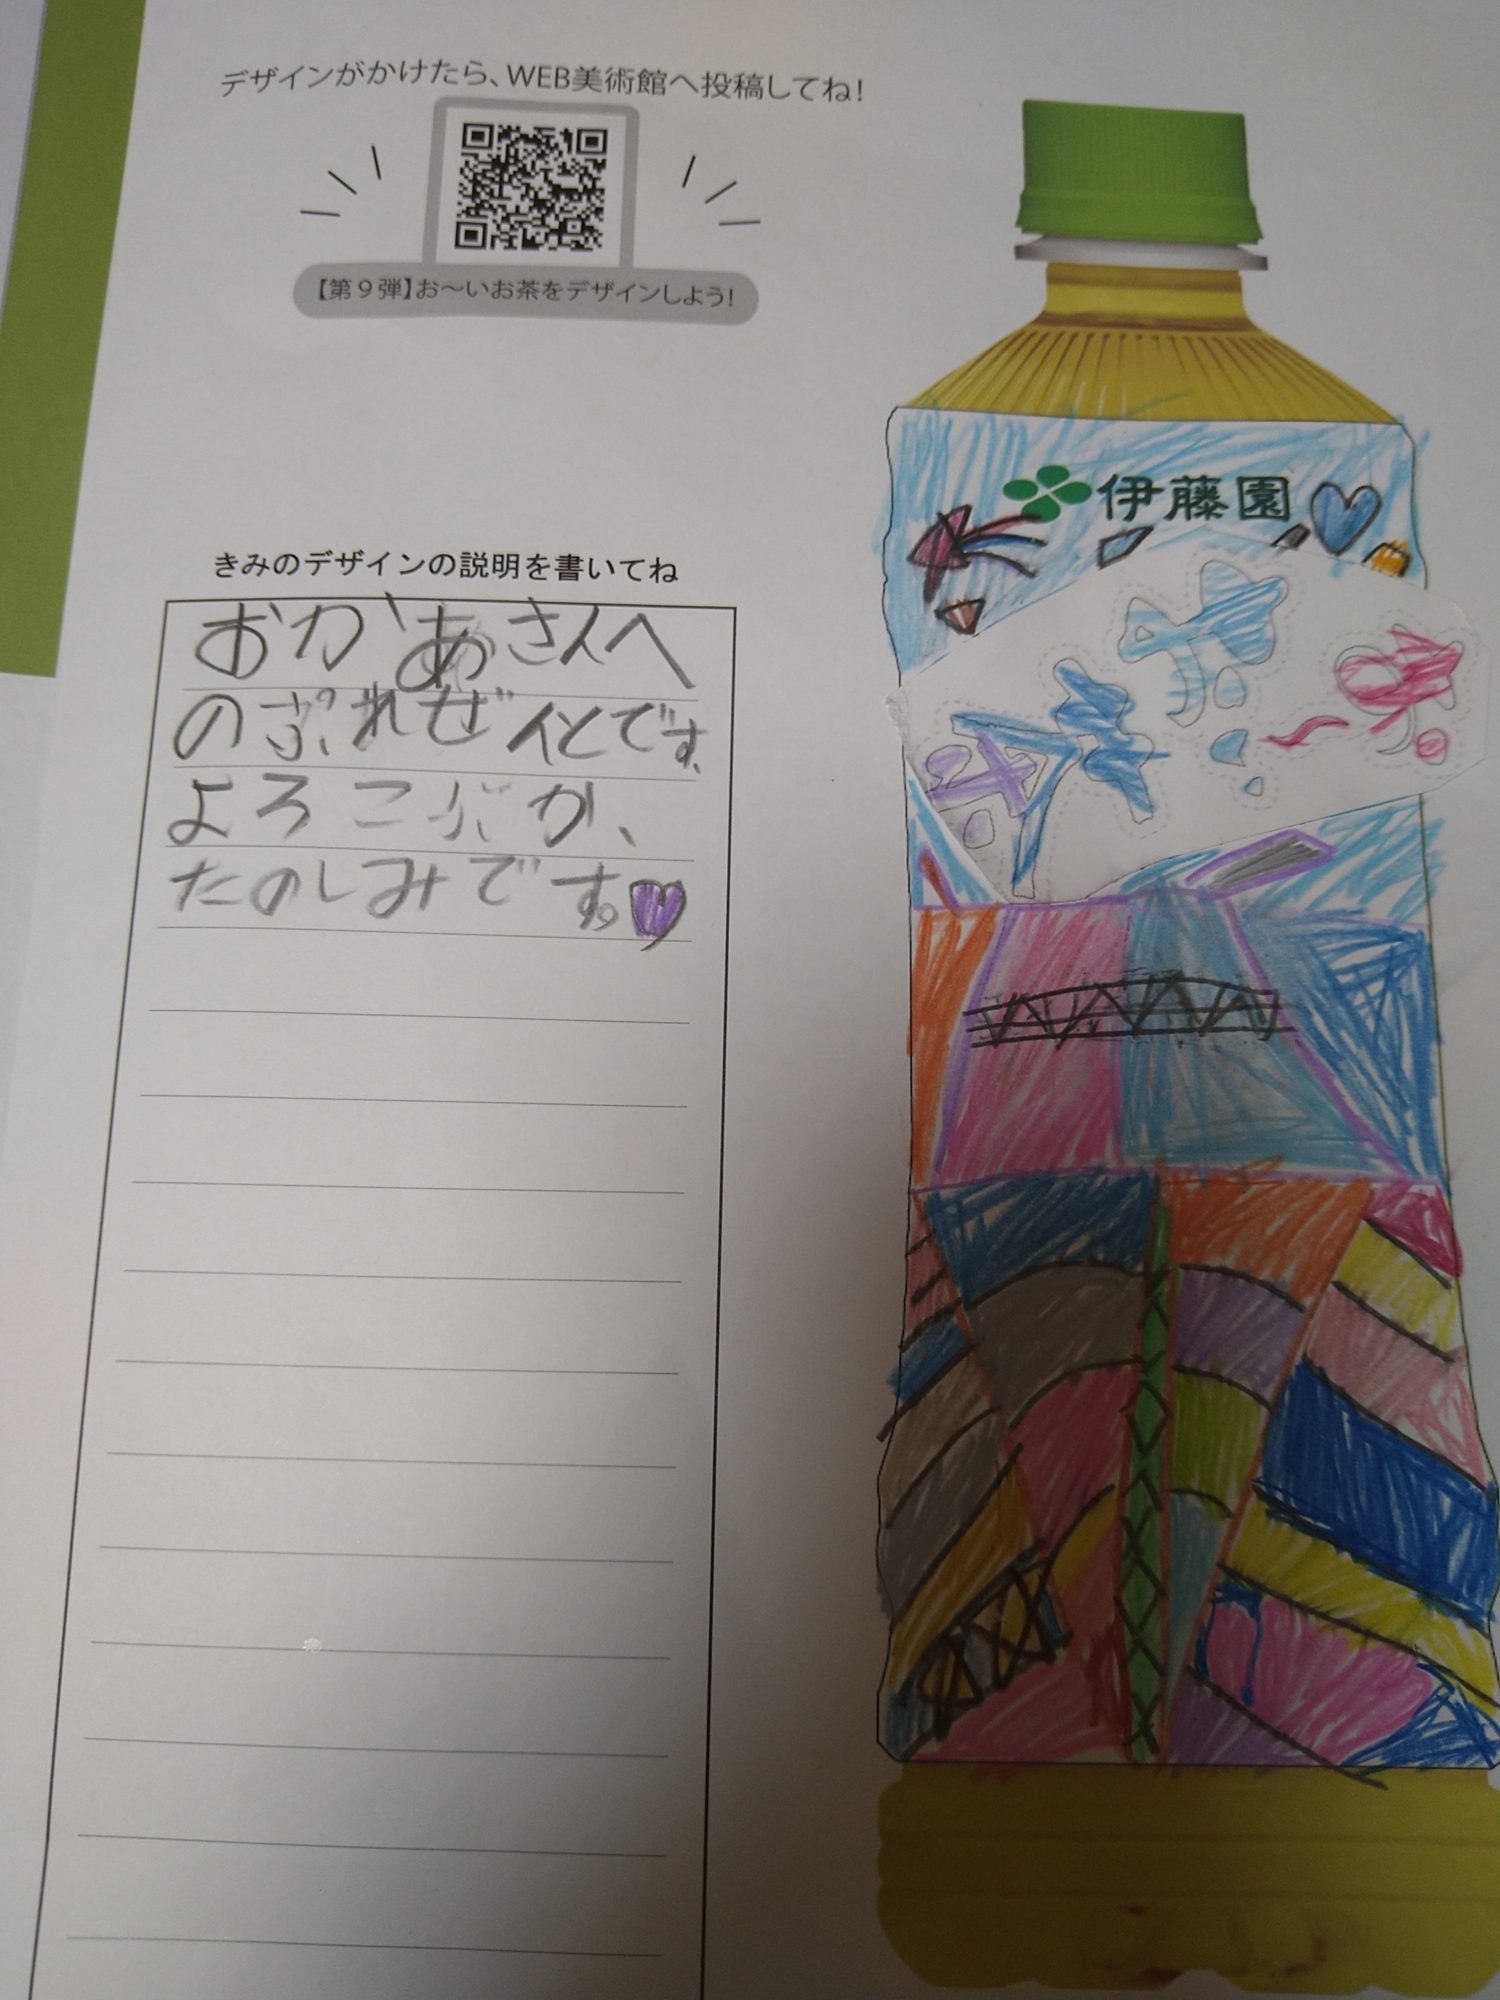 デザインがかけたら、WEB美術館へ投稿してね!
【第9弾】お〜いお茶をデザインしよう!
きみのデザインの説明を書いてね
おかあさんへ
のぷれぜんとです。
よろこぶか、
たのしみです。
伊藤園
お〜いお茶